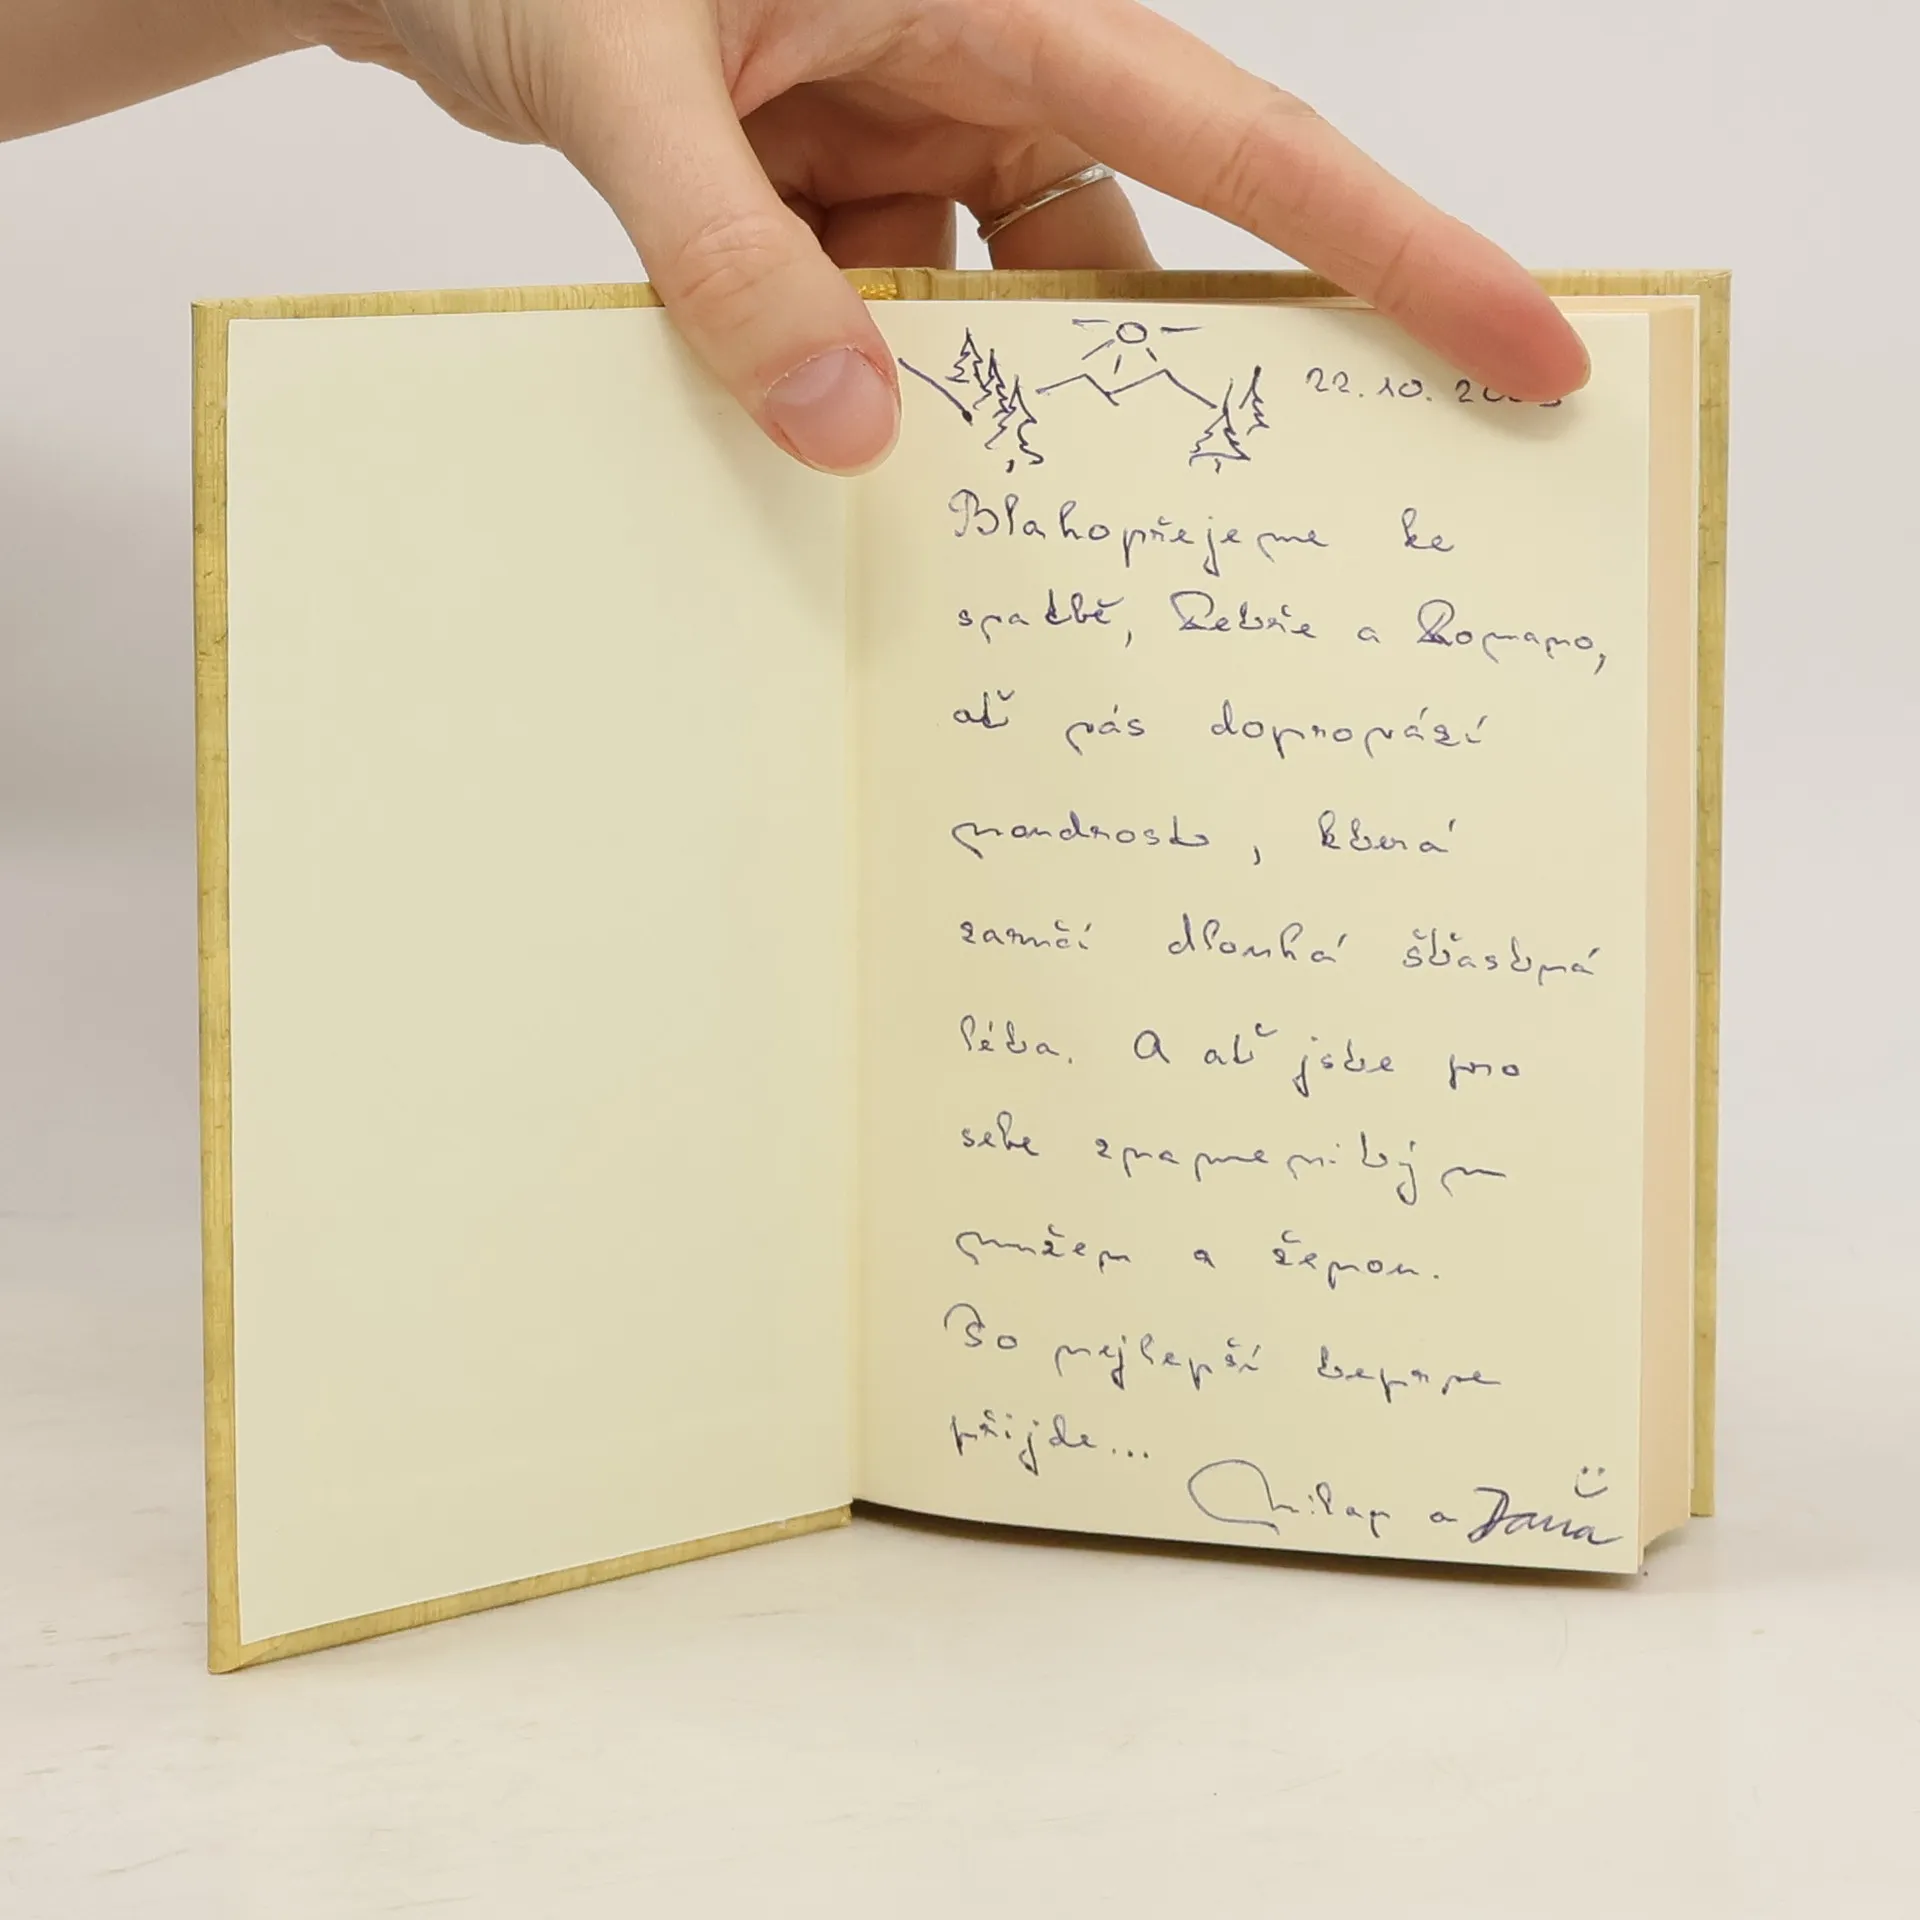 22. 10.
Blahopřejeme ke
svatbě, Petře a Romano,
ať vás doprovází
moudrost, která
zaručí dlouhá šťastná
léta. A ať jste pro
sebe znamenitým
mužem a ženou.
To nejlepší teprve
přijde...
Milan a Dana